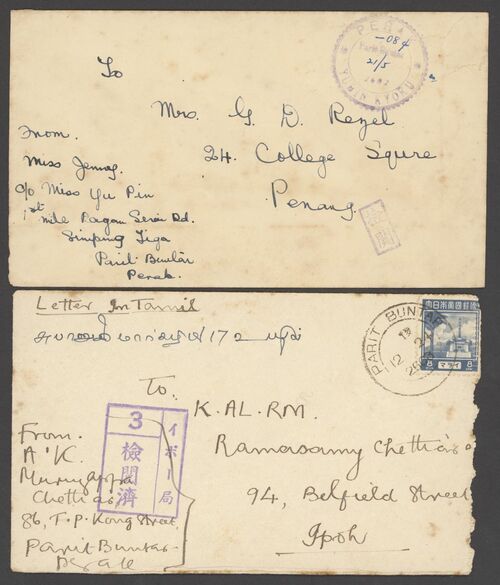 PERA
Parit Buntar
-08 4
21/5
2602
YUBIN KYOKU
To
Mrs. G. D. Rezel
24. College Squre
Penang.
From.
Miss Jennes,
c/o Miss Yu Pin
1st mile Pagan Serai Rd.
Simpang Tiga
Parit Buntar
Perak.
檢閲
Letter In Tamil
大日本帝國郵便
8 マライ 8
PARIT BUNTAR
12
To.
K. AL. RM.
Ramasamy Chettiar
94, Belfield Street
Ipoh
3
イポー局
檢閲済
From.
A. K.
Murugappa
Chettiar,
86, T. P. Kong Street
Parit Buntar
Perak